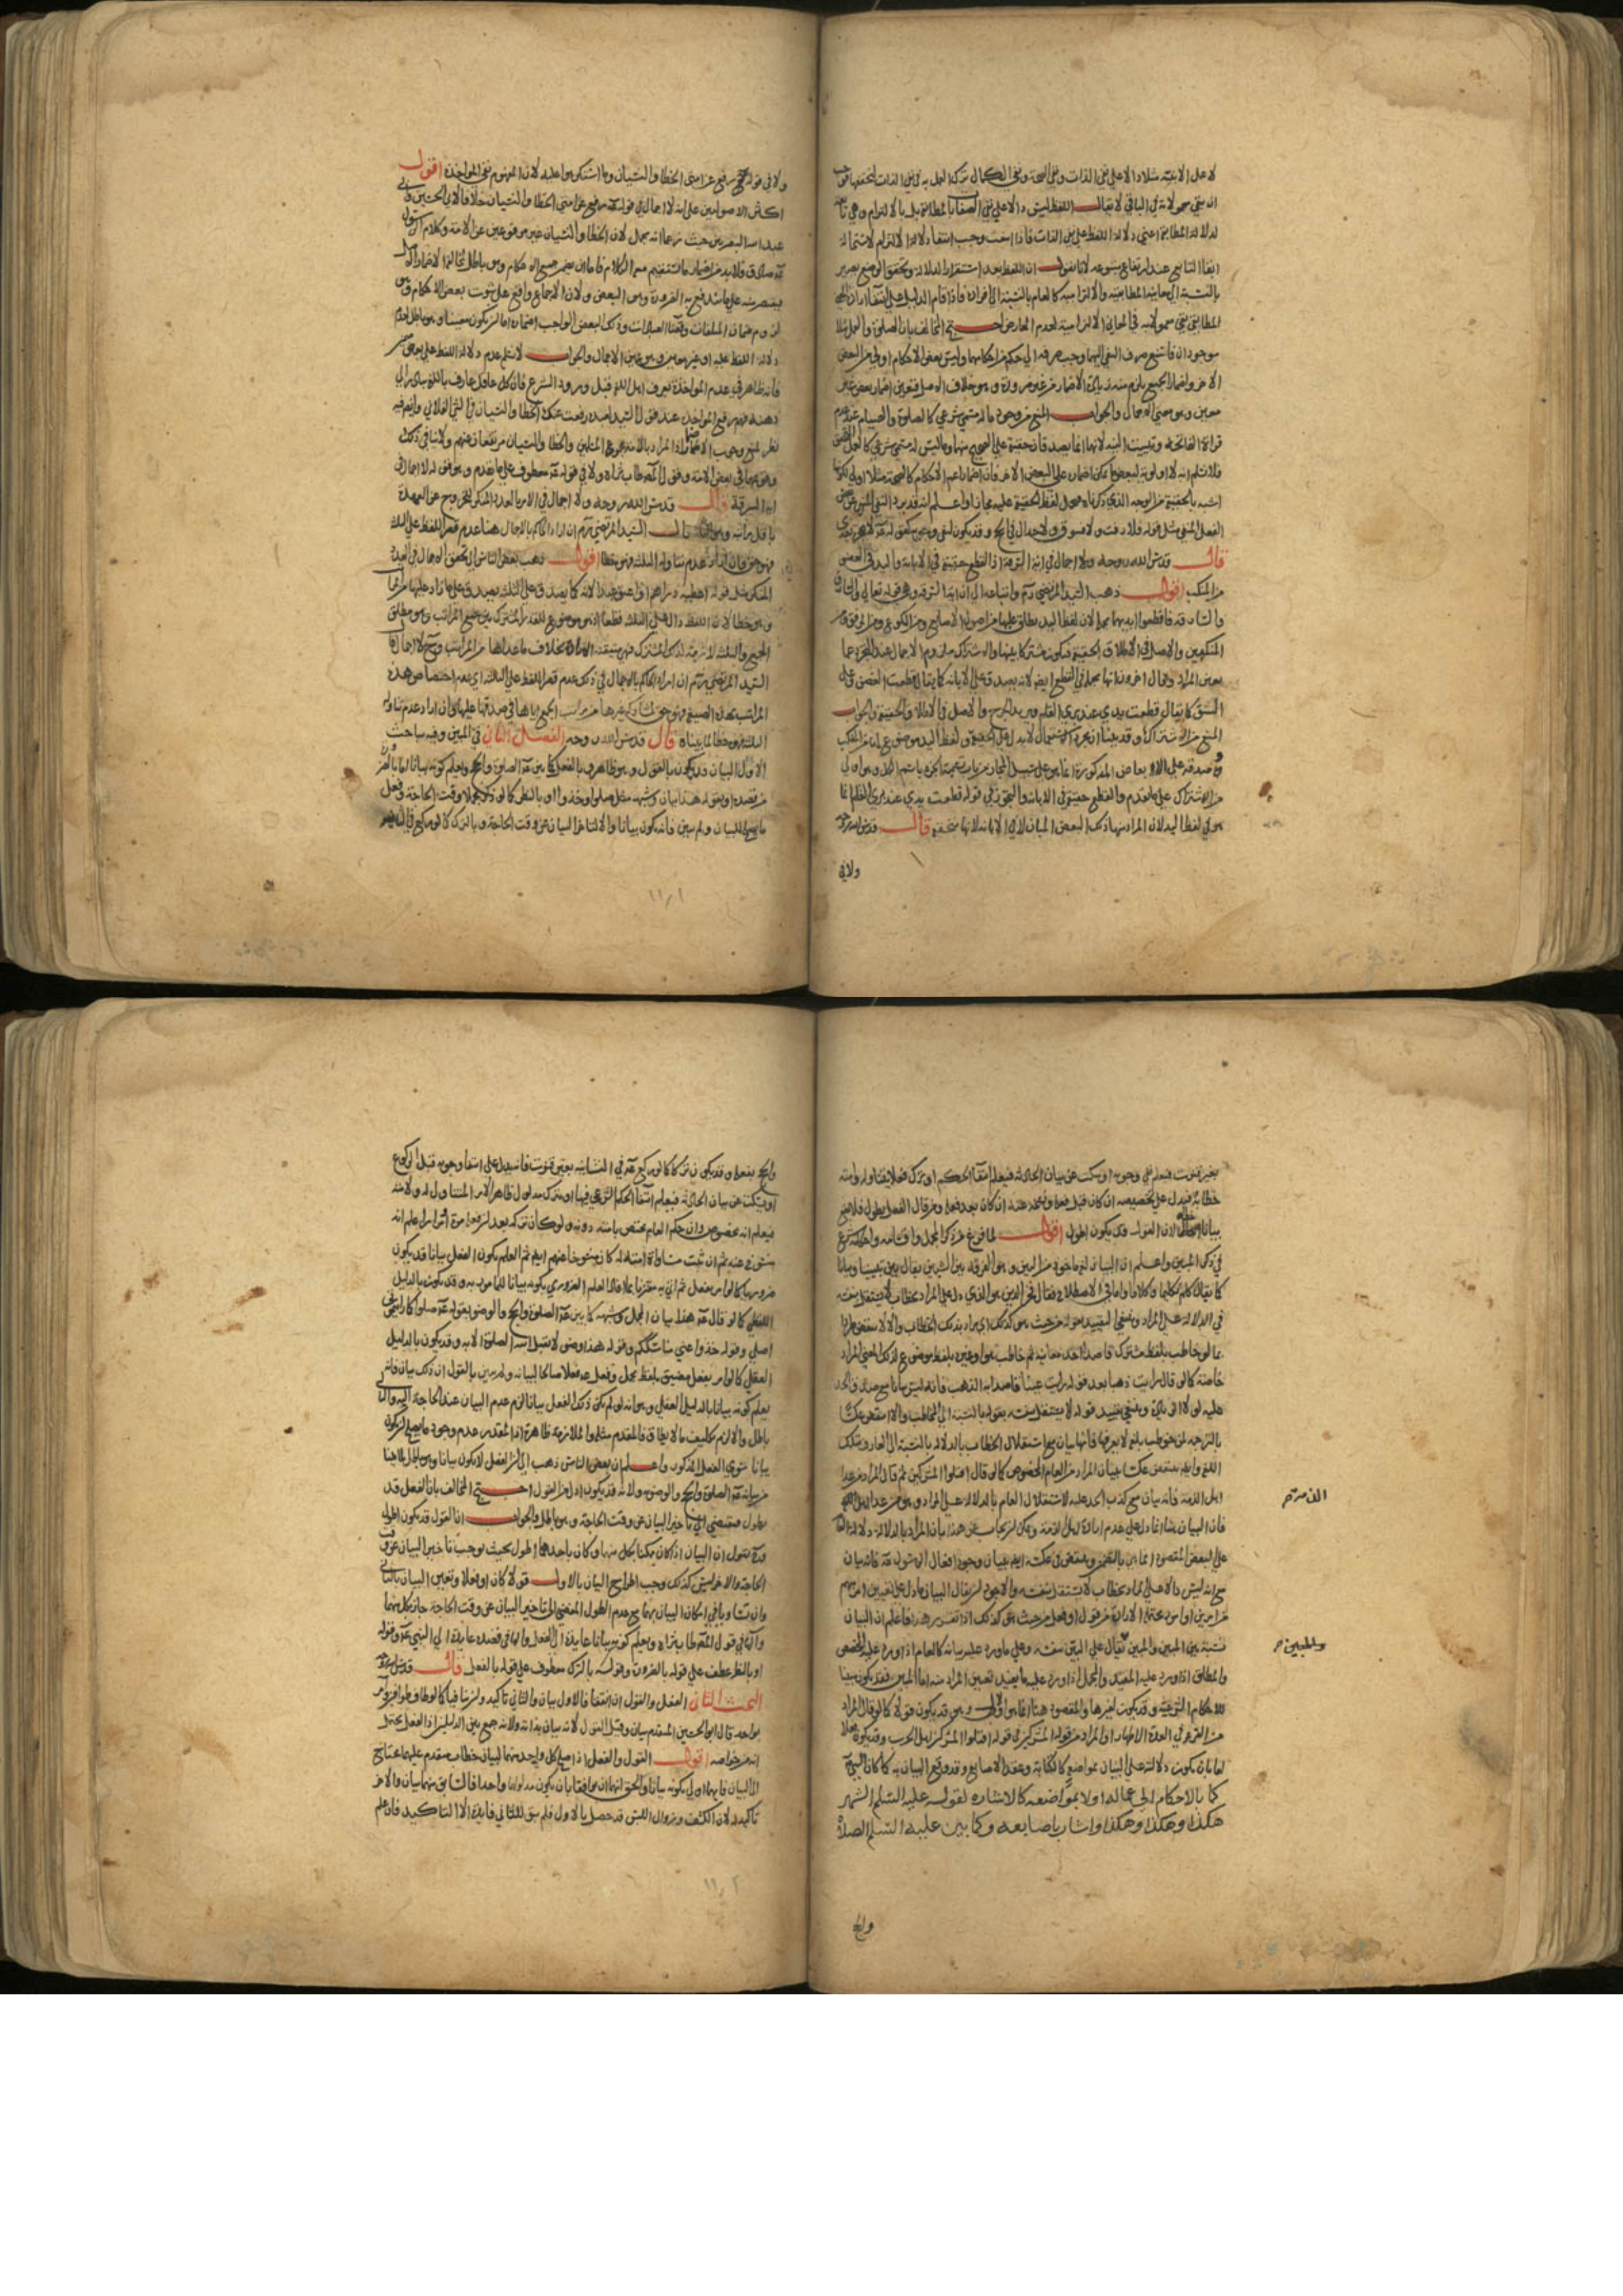 لا عمل الا بنية مثلا دالا على نفي الذات ونفي الصحة ونفي الكمال ترك العمل به في نفي الذات لتحققها فوجب
ان يبقى معمولا به في الباقي لا يقال اللفظ ليس دالا على نفي الصفات بالمطابقة بل بالالتزام وهي تابعة
لدلالة المطابقة اعني دلالة اللفظ على نفي الذات فاذا انتفت وجب انتفاء دلالة الالتزام لاستحالة
بقاء التابع عند ارتفاع متبوعه لانا نقول ان اللفظ بعد استقرار الدلالة وتحقق الوضع يصير
بالنسبة الى معانيه المطابقية والالتزامية كالعام بالنسبة الى افراده فاذا قام الدليل على انتفاء ارادة
المطابقي بقي معمولا به في المعاني الالتزامية لعدم المعارض احتج المخالف بان الصلوة والعمل مثلا
موجودان فامتنع صرف النفي اليهما وجب صرفه الى حكم من احكامهما وليس بعض الاحكام اولى من البعض
الاخر واضمار الجميع يلزم منه زيادة الاضمار من غير ضرورة وهو خلاف الاصل فتعين اضمار بعض غير
معين وهو معنى الاجمال والجواب المنع من وجود ما له مسمى شرعي كالصلوة والصيام عند عدم
قراءة الفاتحة وتبييت النية لانها انما يصدق حقيقة على الصحيح منها وما ليس له مسمى شرعي كالعمل
فلا نسلم انه لا اولوية لبعض ما يمكن اضماره على البعض الاخر فان اضمار اعم الاحكام كالصحة مثلا اولى لكونها
اشبه بالحقيقة من الوجه الذي ذكرناه فيحمل لفظ الحقيقة عليه مجازا واعلم انه قد يرد النفي
الفعل المنفي مثل قوله فلا رفث ولا فسوق ولا جدال في الحج وقد يكون لنفي وجوبه كقوله لا هجرة بعد
قال قدس الله روحه ولا اجمال في اية السرقة اذ القطع حقيقة في الابانة واليد في العضو
من المنكب اقول ذهب السيد المرتضى ره واتباعه الى ان اية السرقة وهي قوله تعالى والسارق
والسارقة فاقطعوا ايديهما مجملة لان لفظ اليد يطلق عليها من اصول الاصابع ومن الكوع ومن المرفق ومن
المنكبين والاصل في الاطلاق الحقيقة فيكون مشتركا بينها والاشتراك ملزوم الاجمال عند التجرد عما
يعين المراد وقال اخرون انها مجملة في القطع ايضا لانه يصدق على الابانة كما يقال قطعت الغصن وعلى
الشق كما يقال قطعت يدي عند بري القلم ويريد الجرح والاصل في الاطلاق الحقيقة والجواب
المنع من الاشتراك وقد بينا ان مجرد الاستعمال لا يدل على الحقيقة ولفظ اليد موضوع لها من المنكب
وصدقه على الابعاض المذكورة انما هو على سبيل المجاز من باب تسمية الجزء باسم الكل وهو اولى
من الاشتراك على ما تقدم والقطع حقيقة في الابانة والتجوز في قوله قطعت يدي عند بري القلم انما
هو في لفظ اليد لان المراد منها ذلك البعض المبان لا في الابانة لانها متحققة قال قدس الله روحه
ولا في
ولا في قوله رفع عن امتي الخطا والنسيان وما استكرهوا عليه لان المفهوم نفي المؤاخذة اقول
اكثر الاصوليين على انه لا اجمال في قوله رفع عن امتي الخطا والنسيان خلافا لابي الحسين وابي
عبد الله البصريين حيث زعما انه مجمل لان الخطا والنسيان غير مرفوعين عن الامة وكلام الرسول
صادق فلا بد من اضمار ما يستقيم معه الكلام فاما ان يضمر جميع الاحكام وهو باطل لمخالفة الاضمار الاصل
فيقتصر منه على ما يندفع به الضرورة وهو البعض ولان الاجماع واقع على ثبوت بعض الاحكام وهو
لزوم ضمان المتلفات وقضاء العبادات وذلك البعض الواجب اضماره اما ان يكون معينا وهو باطل لعدم
دلالة اللفظ عليه او غير معين وهو عين الاجمال والجواب لا نسلم عدم دلالة اللفظ على بعض معين
فانه ظاهر في عدم المؤاخذة بعرف اهل اللغة قبل ورود الشرع فان كل عاقل عارف باللغة يتبادر الى
ذهنه فهم رفع المؤاخذة عند قول السيد لعبده رفعت عنك الخطا والنسيان في الشي الفلاني وايضا فيه
نظر لمنع وجوب الاضمار اذ المراد بالامة مجموعها والخطا والنسيان مرتفعان عنهم ولا ينافي ذلك
وقوعهما في بعض الامة وقول المص طاب ثراه ولا في قوله معطوف على ما تقدم وهو قوله لا اجمال في
اية السرقة قال قدس الله روحه ولا اجمال في الامر بالعدد المنكر للخروج عن العهدة
باقل مراتبه وهو الثلث السيد المرتضى ره ان اراد الحاكم بالاجمال هنا عدم قصر اللفظ على الثلث
فهو حق وان اراد عدم تناوله الثلث فهو خطا اقول ذهب بعض الناس الى تحقق الاجمال في العدد
المنكر مثل قوله اعطه دراهم او اعتق عبيدا لانه كما يصدق على الثلث يصدق على ما زاد عليها من المراتب
وهو خطا لان اللفظ دال على الثلث قطعا اذ هو موضوع للقدر المشترك بين جميع المراتب وهو مطلق
الجمع والثلث لازمة لذلك المشترك فهي متيقنة الارادة بخلاف ما عداها من المراتب وح لا اجمال قال
السيد المرتضى ره ان اراد الحاكم بالاجمال في ذلك عدم قصر اللفظ على الثلث اي عدم اختصاص هذه
المراتب بهذه الصيغة فهو حق لمشاركة غيرها من مراتب الجمع اياها في صدقها عليها وان اراد عدم تناوله
الثلث فهو خطا لما بيناه قال قدس الله روحه الفصل الثاني في المبين وفيه مباحث
الاول البيان قد يكون بالقول وهو ظاهر وبالفعل كما بين الصلوة والحج ويعلم كونه بيانا اما بالضرورة
من قصده او بقوله هذا بيان وشبهه مثل صلوا وخذوا او بالنظر كما لو ذكر مجملا وقت الحاجة وفعل
ما يصلح للبيان ولم يبين فانه يكون بيانا والا لتاخر البيان عن وقت الحاجة وبالترك كما لو ركع في الثانية
١١٫١
بغير قنوت فيعلم نفي وجوبه او سكت عن بيان الحادثة فيعلم انتفاء الحكم او ترك فعلا يتناوله وامته
خطابه فيدل على تخصيصه ان كان قبل فعله ونسخه عنه ان كان بعد فعله ومن قال الفعل يطول فلا يقع
بيانا اخطا لان القول قد يكون اطول اقول لما فرغ من ذكر المجمل واقسامه واحكامه شرع
في ذكر المبين واعلم ان البيان لغة ماخوذ من البين وهو الفرقة بين الشيئين يقال بين تبيينا وبيانا
كما يقال كلم تكليما وكلاما واما في الاصطلاح فقال فخر الدين هو الذي دل على المراد بخطاب لا يستقل بنفسه
في الدلالة على المراد وينبغي التقييد بقوله من حيث هو كذلك اي مراد بذلك الخطاب والا لانتقض طردا
بما لو خاطب بلفظ مشترك قاصدا احد معانيه ثم خاطب هو او غيره بلفظ موضوع لذلك المعنى المراد
خاصة كما لو قال رايت ذهبا بعد قوله رايت عينا قاصدا به الذهب فانه ليس بيانا مع صدق الحد
عليه لولا الزيادة وينبغي تقييد قوله لا يستقل بنفسه بقوله بالنسبة الى المخاطب والا انتقض عكسا
بالترجمة لمن خوطب بلغة لا يعرفها فانها بيان مع استقلال الخطاب بالدلالة بالنسبة الى العارف بتلك
اللغة وايضا ينتقض عكسا ببيان المراد من العام المخصوص كما لو قال اقتلوا المشركين ثم قال المراد من عدا
اهل الذمة فانه بيان مع كذب الحد عليه لاستقلال العام بالدلالة على المراد وهو من عدا اهل الذمة
فان البيان هنا انما دل على عدم ارادة اهل الذمة ويمكن ان يجاب عن هذا بان المراد بالدلالة دلالة اللفظ
على البعض المقصود انما هي بالتضمن وينتقض في عكسه ايضا ببيان وجوه افعال الرسول فانه بيان
مع انه ليس دالا على مراد بخطاب لا يستقل بنفسه والاجود ان يقال البيان ما دل على تعيين احد
من امرين او امور محتملة الارادة من قول او فعل من حيث هو كذلك اذا تقرر هذا فاعلم ان البيان
نسبة بين المبين والمبين ثم يقال على المبين بنفسه وعلى ما ورد عليه بيانه كالعام اذا ورد عليه المخصص
والمطلق اذا ورد عليه المقيد والمجمل اذا ورد عليه ما يفيد تعيين المراد منه اما المبين فقد يكون مبينا
للاحكام الشرعية وقد يكون لغيرها والمقصود هنا انما هو الاول وهو قد يكون قولا كما لو قال المراد
من القروء في العدة الاطهار او المراد من قوله المشركين في قوله اقتلوا المشركين اهل الحرب وقد يكون فعلا
اما بان يكون دلالته على البيان بمواضعة كالكتابة وعقد الاصابع وقد وقع البيان به كما كاتب النبي
كما بالاحكام الى عماله او لا بمواضعة كالاشارة لقوله عليه السلم الشهر
هكذا وهكذا وهكذا واشار باصابعه وكما بين عليه السلم الصلاة
والحج
الذمة صح
والمبين صح
والحج بفعله وقد يكون تركا كما لو ركع في الثانية بغير قنوت فانه يدل على انتفاء وجوبه قبل الركوع
او يسكت عن بيان الحادثة فيعلم انتفاء الحكم الشرعي فيها او يترك مدلول ظاهر الامر المتناول له ولامته
فيعلم انه مخصوص وان حكم العام مختص بامته دونه ولو كان تركه بعد ان فعله مرة او مرارا علم انه
منسوخ عنه ثم ان ثبت مساواة امته له كان منسوخا عنهم ايضا ثم العلم بكون الفعل بيانا قد يكون
ضروريا كما لو امر بفعل ثم اتى به مقترنا بما افاد العلم الضروري بكونه بيانا لما امر به وقد يكون بالدليل
اللفظي كما لو قال هذا بيان المجمل وشبهه كما بين الصلوة والحج والوضوء بقوله صلوا كما رايتموني
اصلي وقوله خذوا عني مناسككم وقوله هذا وضوء لا يقبل الله الصلوة الا به وقد يكون بالدليل
العقلي كما لو امر بفعل مضيق بلفظ مجمل وفعل فعلا صالحا لبيانه ولم يبين بالقول ان ذلك بيان فانه
يعلم كونه بيانا بالدليل العقلي وهو انه لو لم يكن ذلك الفعل بيانا لزم عدم البيان عند الحاجة اليه والتالي
باطل والا لزم تكليف ما لا يطاق فالمقدم مثله والملازمة ظاهرة اذ المقدر عدم وجود ما يصلح ان يكون
بيانا سوى الفعل المذكور واعلم ان بعض الناس ذهب الى ان الفعل لا يكون بيانا وهو باطل لما بينا
من بيانه الصلوة والحج والوضوء به ولانه قد يكون ادل من القول احتج المخالف بان الفعل قد
يطول فيقتضي الى تاخير البيان عن وقت الحاجة وهو باطل والجواب ان القول قد يكون اطول
وح نقول ان البيان اذا كان ممكنا بكل منهما وكان باحدهما اطول بحيث يوجب تاخير البيان عن وقت
الحاجة والاخر ليس كذلك وجب اطراح البيان بالاول قولا كان او فعلا وتعين البيان بالثاني
وان تساويا في امكان البيان بهما مع عدم الطول المفضي الى تاخير البيان عن وقت الحاجة جاز بكل منهما
والهاء في قول المص طاب ثراه ويعلم كونه بيانا عايدة الى الفعل والهاء في قصده عايدة الى النبي وقوله
او بالنظر عطف على قوله بالضرورة وقوله بالترك معطوف على قوله بالفعل قال قدس الله روحه
البحث الثاني الفعل والقول ان اتفقا فالاول بيان والثاني تاكيد وان تنافيا كما لو طاف طوافين وامر
بواحد قال ابو الحسين المتقدم بيان وقيل القول لانه بيان بذاته ولانه جمع بين الدليلين اذ الفعل يحتمل
انه من خواصه اقول القول والفعل اذا صلح كل واحد منهما لبيان خطاب متقدم عليهما يحتاج
الى البيان فايهما اولى بكونه بيانا والحق انهما ان توافقا بان يكون مدلولهما واحدا فالسابق منهما بيان والاخر
تاكيد له لان الكشف وزوال اللبس قد حصل بالاول فلم يبق للثاني فايدة الا التاكيد فان علم
١١٫٢